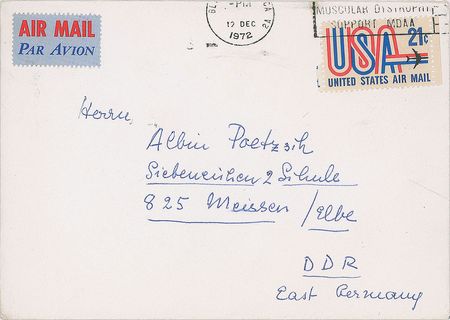 AIR MAIL
PAR AVION
PM
12 DEC
1972
MUSCULAR DYSTROPHY
SUPPORT MDAA
USA 21c
UNITED STATES AIR MAIL
Herrn
Albin Poetzsch
825 Meissen / Elbe
DDR
East Germany